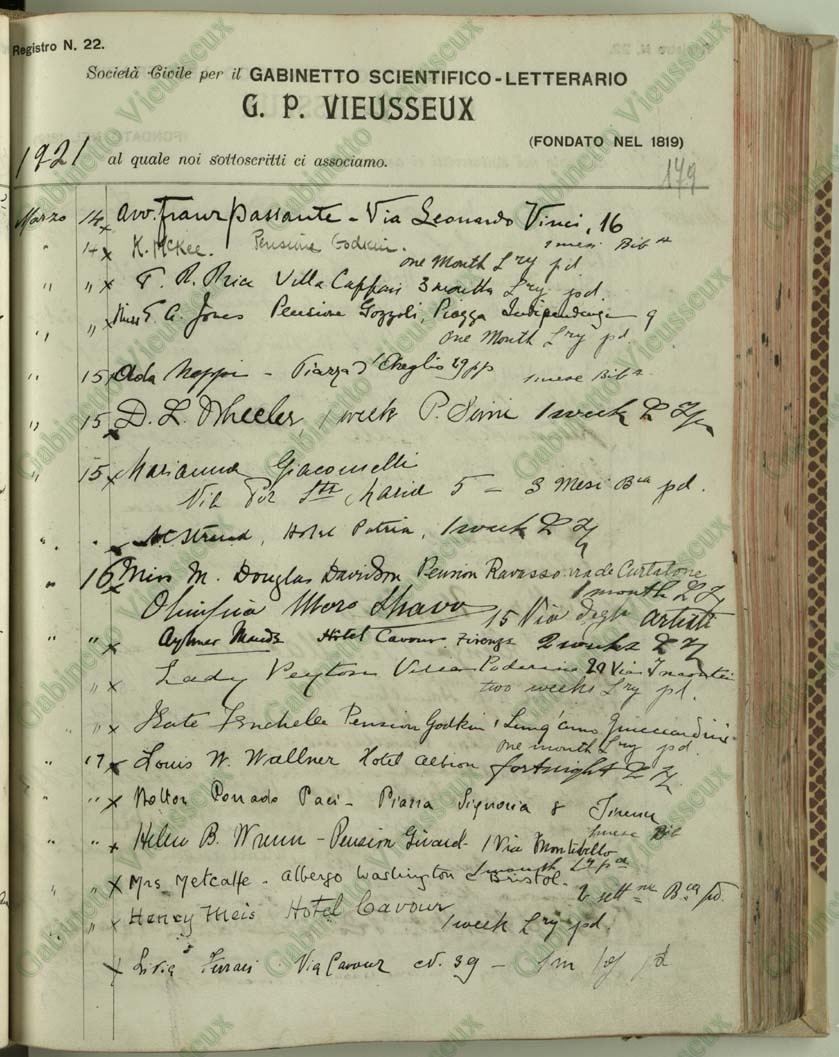 Registro N. 22.
Società Civile per il GABINETTO SCIENTIFICO-LETTERARIO
G. P. VIEUSSEUX
(FONDATO NEL 1819)
1921 al quale noi sottoscritti ci associamo.
179
Marzo 14 x Avv. Franz Passante - Via Leonardo Vinci, 16
1 mese Bib
" 14 x K. McKee. Pensione Godkin.
one Month Lry pd.
" " x T. R. Price Villa 3 months Lry pd.
" " x Miss E. A. Jones Pensione Gozzoli, Piazza Indipendenza 9
One Month Lry pd
" 15 x Ada - Piazza d'Azeglio 29 pp 1 mese Bib
" 15 x D. L. Wheeler, 1 week P. Simi 1 week L
" 15 x Marianna Giacomelli
Via Por Sta Maria 5 - 3 Mesi Bca pd.
" " x Hotel Patria, 1 week L
" 16 x Miss M. Douglas Davidson Pension Ravasso via de Curtatone
1 month L
Moro 15 Via degli Artisti
" " x Aylmer Maude Hotel Cavour. Firenze 2 weeks L
" x Lady Peyton Villa 20 Via
two weeks Lry pd.
" x Kate Pension Godkin, Lung'arno Guicciardini
one month Lry pd.
" 17 x Louis W. Wallner Hotel Albion fortnight L
" " x Dottor Corrado Paci - Piazza Signoria 8 Firenze
1 mese Bib
" " x Helen B. Wrenn - Pension Girard - 1 Via Montebello
1 month Lry pd
" x Mrs. Metcalfe - Albergo Washington & Bristol.
2 sett Bca pd.
" " x Henry Meis Hotel Cavour
1 week Lry pd.
x Livia Via Cavour 39 - 1 m pd
Gabinetto Vieusseux